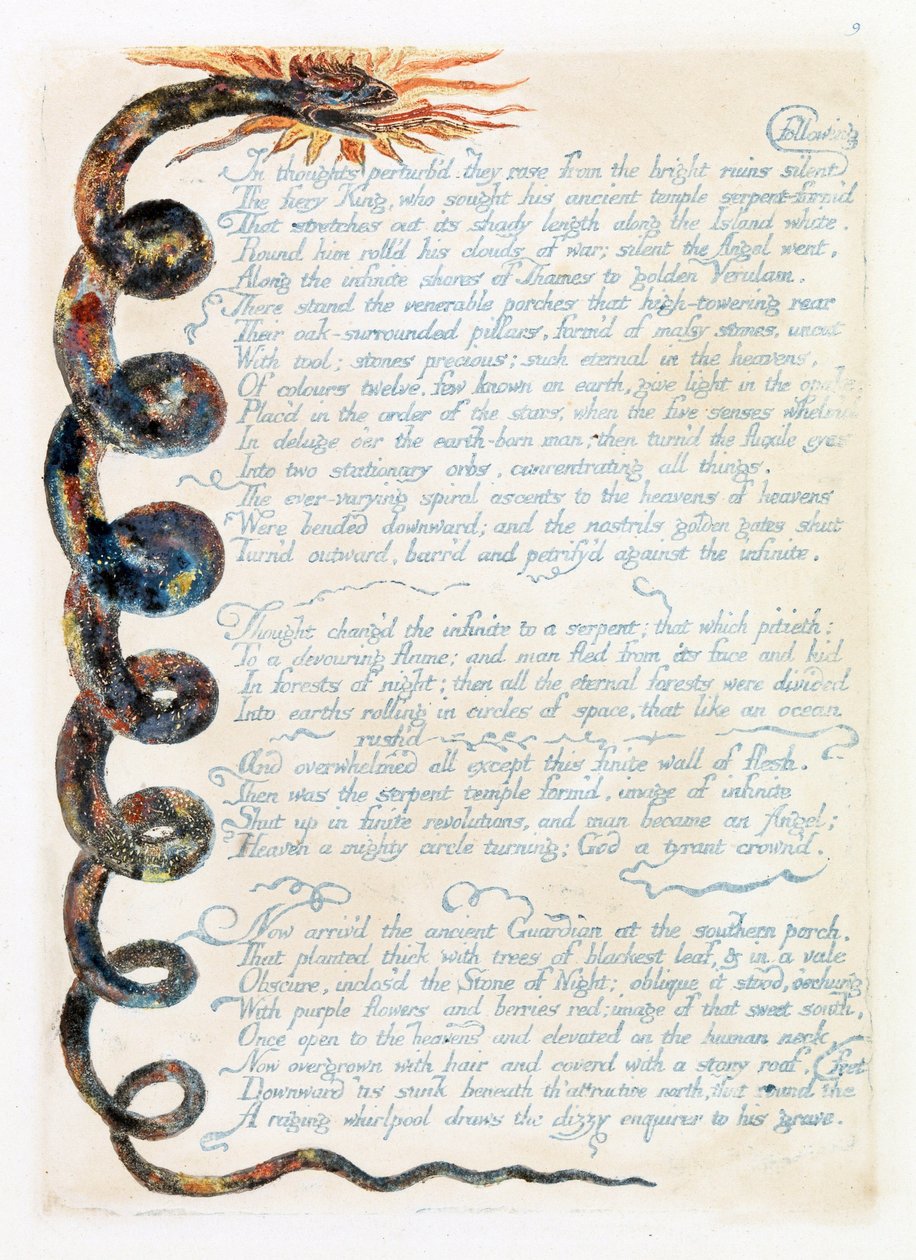 9
following
In thoughts perturb'd they rose from the bright ruins silent
The fiery King, who sought his ancient temple serpent-form'd
That stretches out its shady length along the Island white.
Round him roll'd his clouds of war; silent the Angel went,
Along the infinite shores of Thames to golden Verulam.
There stand the venerable porches that high-towering rear
Their oak-surrounded pillars, form'd of massy stones, uncut
With tool; stones precious; such eternal in the heavens,
Of colours twelve, few known on earth, give light in the opake,
Plac'd in the order of the stars, when the five senses whelm'd
In deluge o'er the earth-born man; then turn'd the fluxile eyes
Into two stationary orbs, concentrating all things.
The ever-varying spiral ascents to the heavens of heavens
Were bended downward; and the nostrils golden gates shut
Turn'd outward, barr'd and petrify'd against the infinite.
Thought chang'd the infinite to a serpent; that which pitieth:
To a devouring flame; and man fled from its face and hid
In forests of night; then all the eternal forests were divided
Into earths rolling in circles of space, that like an ocean
rush'd
And overwhelmed all except this finite wall of flesh.
Then was the serpent temple form'd, image of infinite
Shut up in finite revolutions, and man became an Angel;
Heaven a mighty circle turning; God a tyrant crown'd.
Now arriv'd the ancient Guardian at the southern porch,
That planted thick with trees of blackest leaf, & in a vale
Obscure, inclos'd the Stone of Night; oblique it stood, o'erhung
With purple flowers and berries red; image of that sweet south,
Once open to the heavens and elevated on the human neck,
Now overgrown with hair and coverd with a stony roof,
feet
Downward 'tis sunk beneath th' attractive north, that round the
A raging whirlpool draws the dizzy enquirer to his grave.